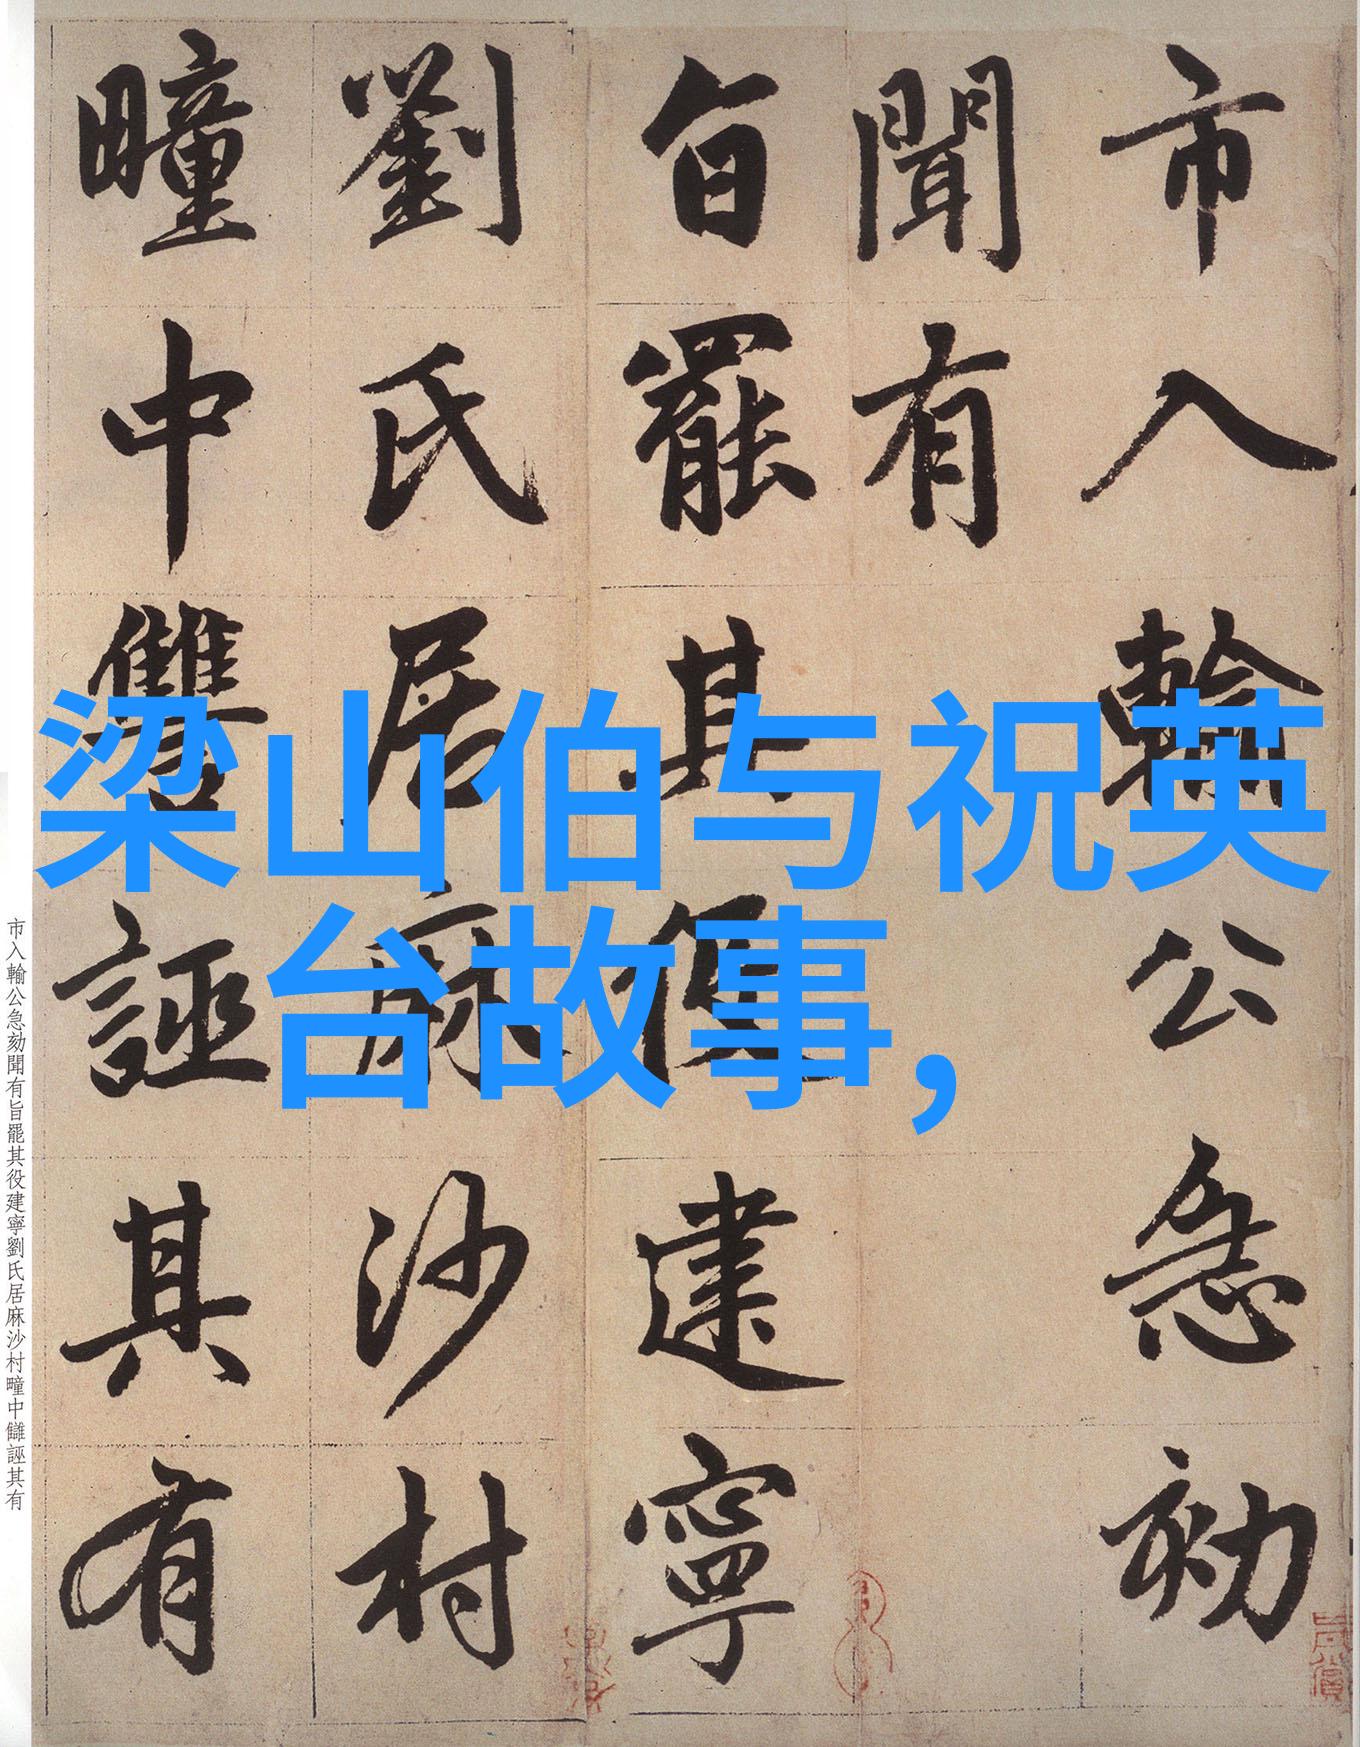 市入輪公急劾
聞有
旨罷其役建寧
劉氏居麻沙村
疃中讎誣其有
梁山伯与祝英
台故事,
市入輪公急劾聞有旨罷其役建寧劉氏居麻沙村疃中讎誣其有